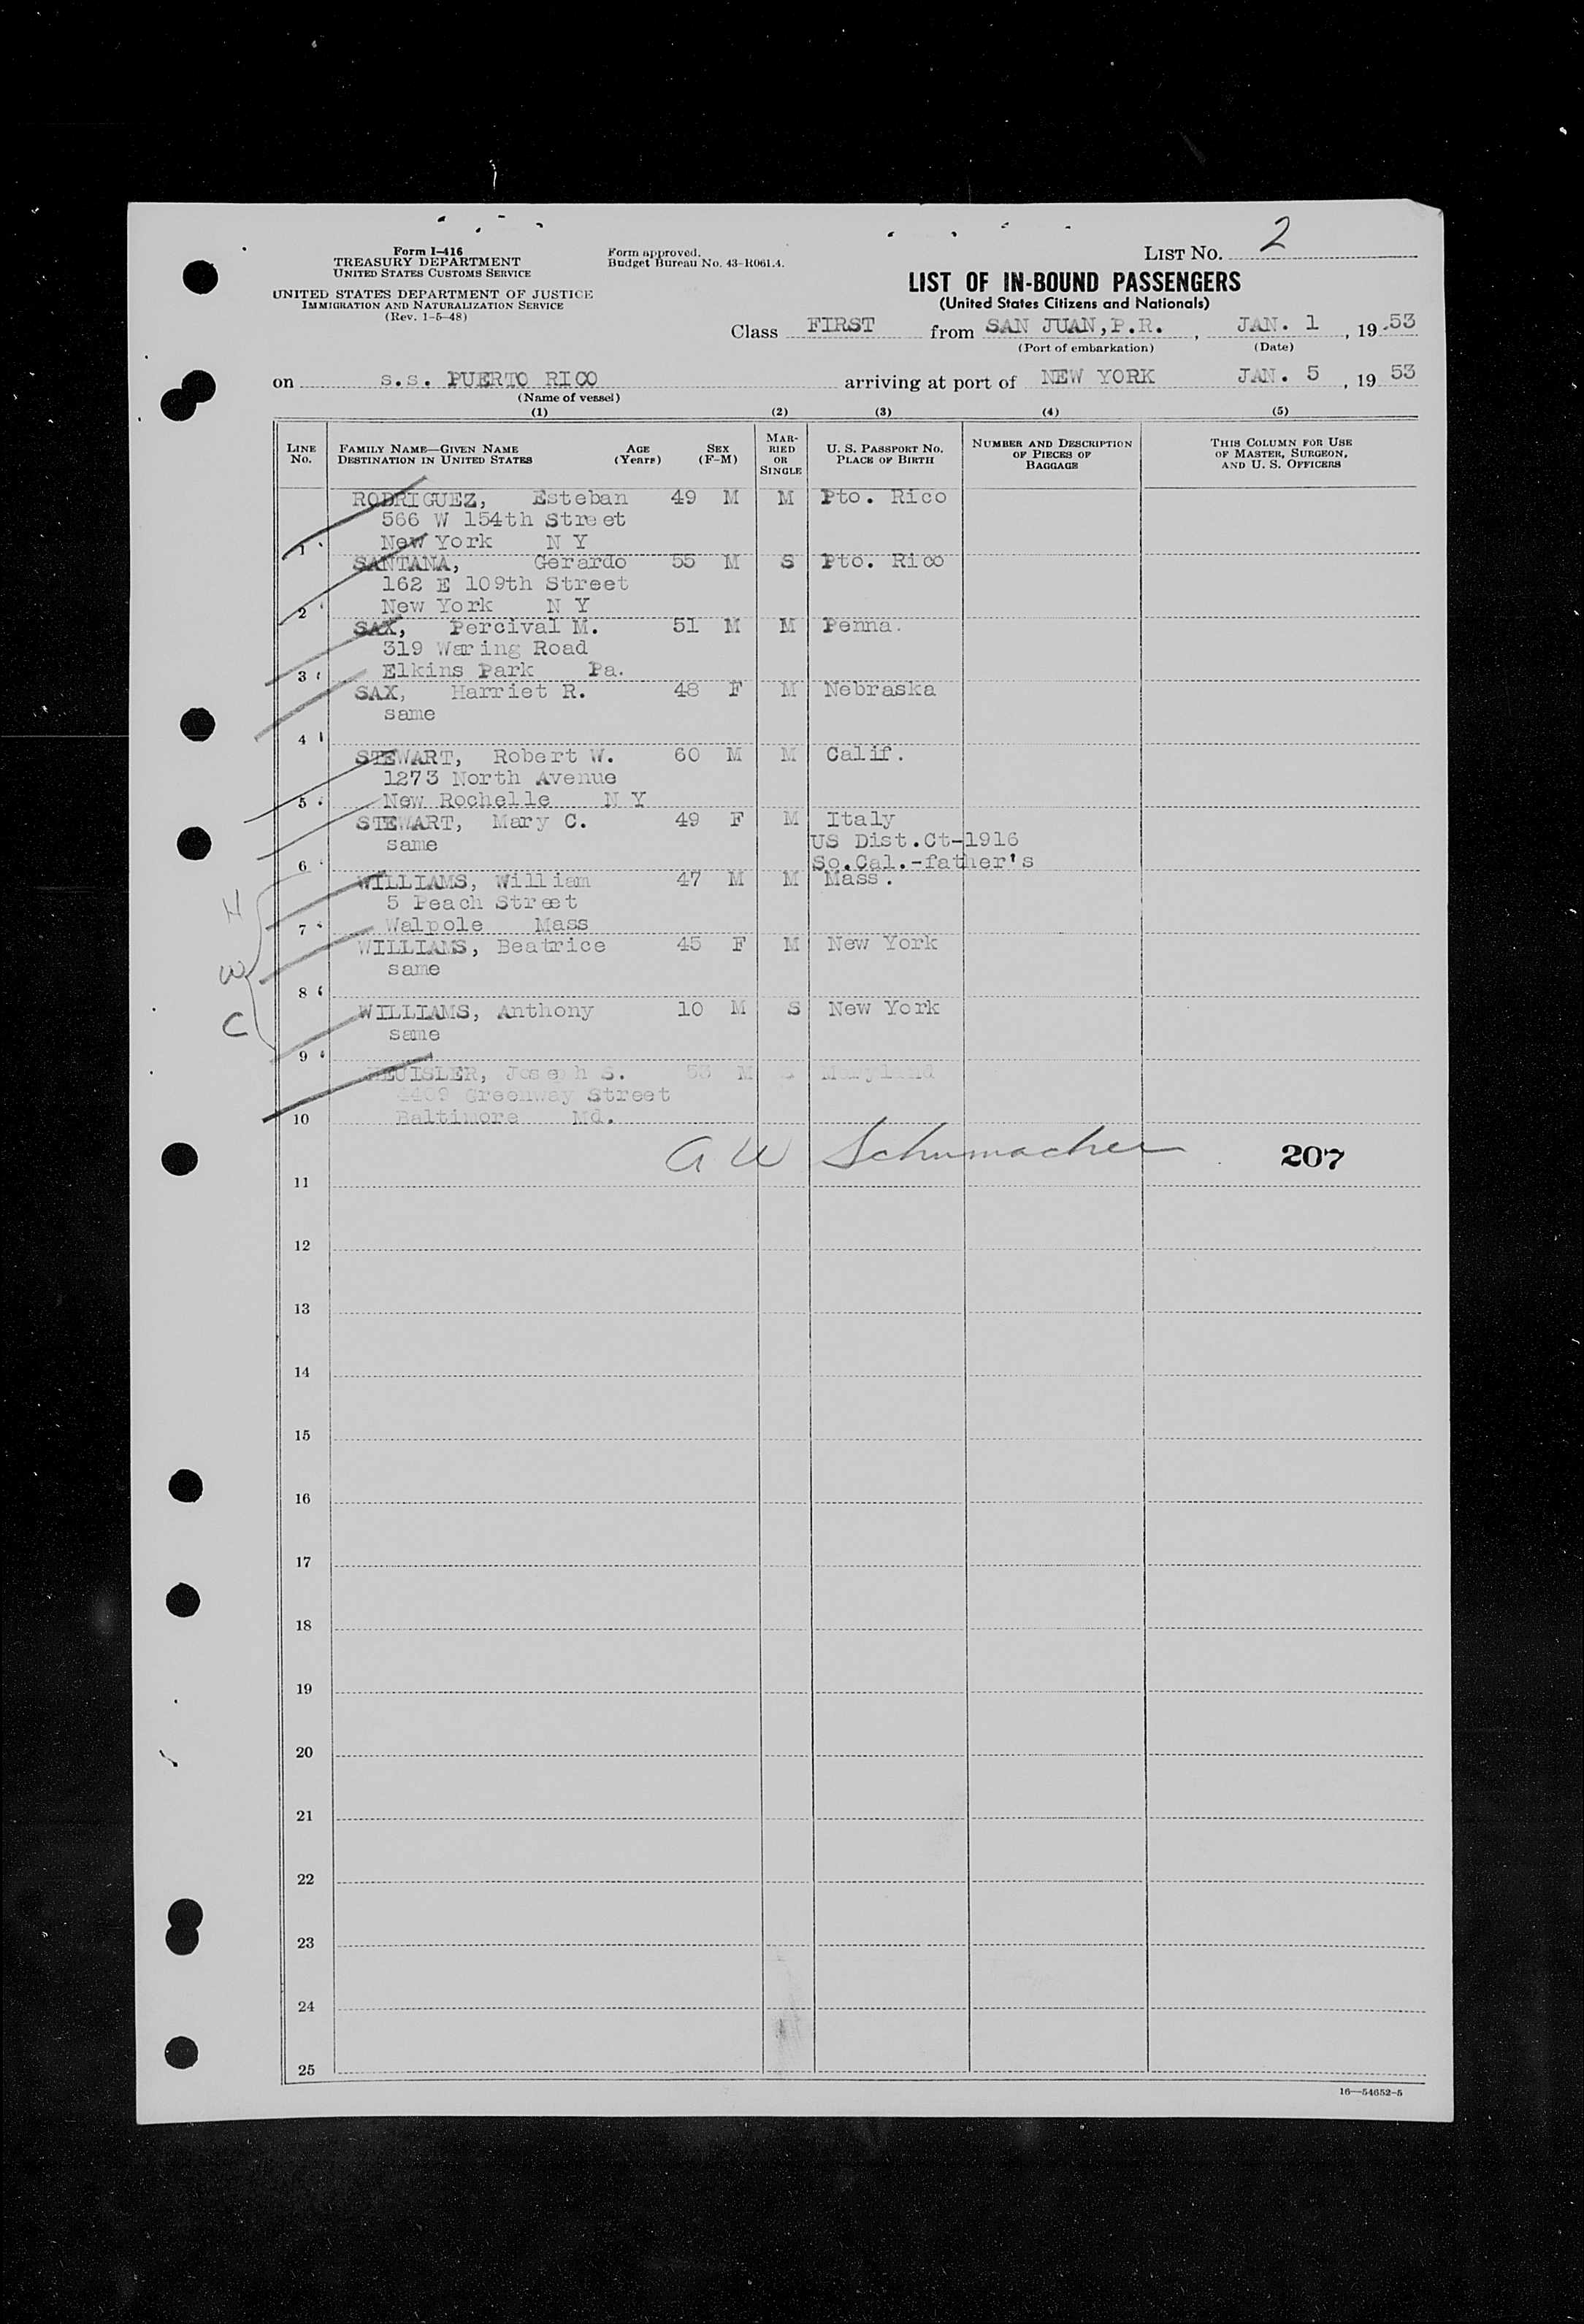 Form I-416
TREASURY DEPARTMENT
UNITED STATES CUSTOMS SERVICE
UNITED STATES DEPARTMENT OF JUSTICE
IMMIGRATION AND NATURALIZATION SERVICE
(Rev. 1-5-48)
Form approved.
Budget Bureau No. 43-R061.4.
LIST NO. 2
LIST OF IN-BOUND PASSENGERS
(United States Citizens and Nationals)
Class FIRST from SAN JUAN, P.R. , JAN. 1 , 19 53
(Port of embarkation) (Date)
on s.s. PUERTO RICO arriving at port of NEW YORK JAN. 5 , 19 53
(Name of vessel)
(1) (2) (3) (4) (5)
LINE NO. FAMILY NAME—GIVEN NAME DESTINATION IN UNITED STATES AGE (Years) SEX (F-M) MARRIED OR SINGLE U. S. PASSPORT NO. PLACE OF BIRTH NUMBER AND DESCRIPTION OF PIECES OF BAGGAGE THIS COLUMN FOR USE OF MASTER, SURGEON, AND U. S. OFFICERS
RODRIGUEZ, Esteban 49 M M Pto. Rico
566 W 154th Street
1 New York N Y
SANTANA, Gerardo 55 M S Pto. Rico
162 E 109th Street
2 New York N Y
SAX, Percival M. 51 M M Penna.
319 Waring Road
3 Elkins Park Pa.
SAX, Harriet R. 48 F M Nebraska
same
4
STEWART, Robert W. 60 M M Calif.
1273 North Avenue
5 New Rochelle N Y
STEWART, Mary C. 49 F M Italy
same US Dist.Ct-1916
6 So.Cal.-father's
WILLIAMS, William 47 M M Mass.
H 5 Peach Street
7 Walpole Mass
WILLIAMS, Beatrice 45 F M New York
W same
8
WILLIAMS, Anthony 10 M S New York
C same
9
HEUISLER, Joseph S. 53 M S Maryland
4409 Greenway Street
10 Baltimore Md.
A W Schumacher 207
11
12
13
14
15
16
17
18
19
20
21
22
23
24
25
16—54652-5